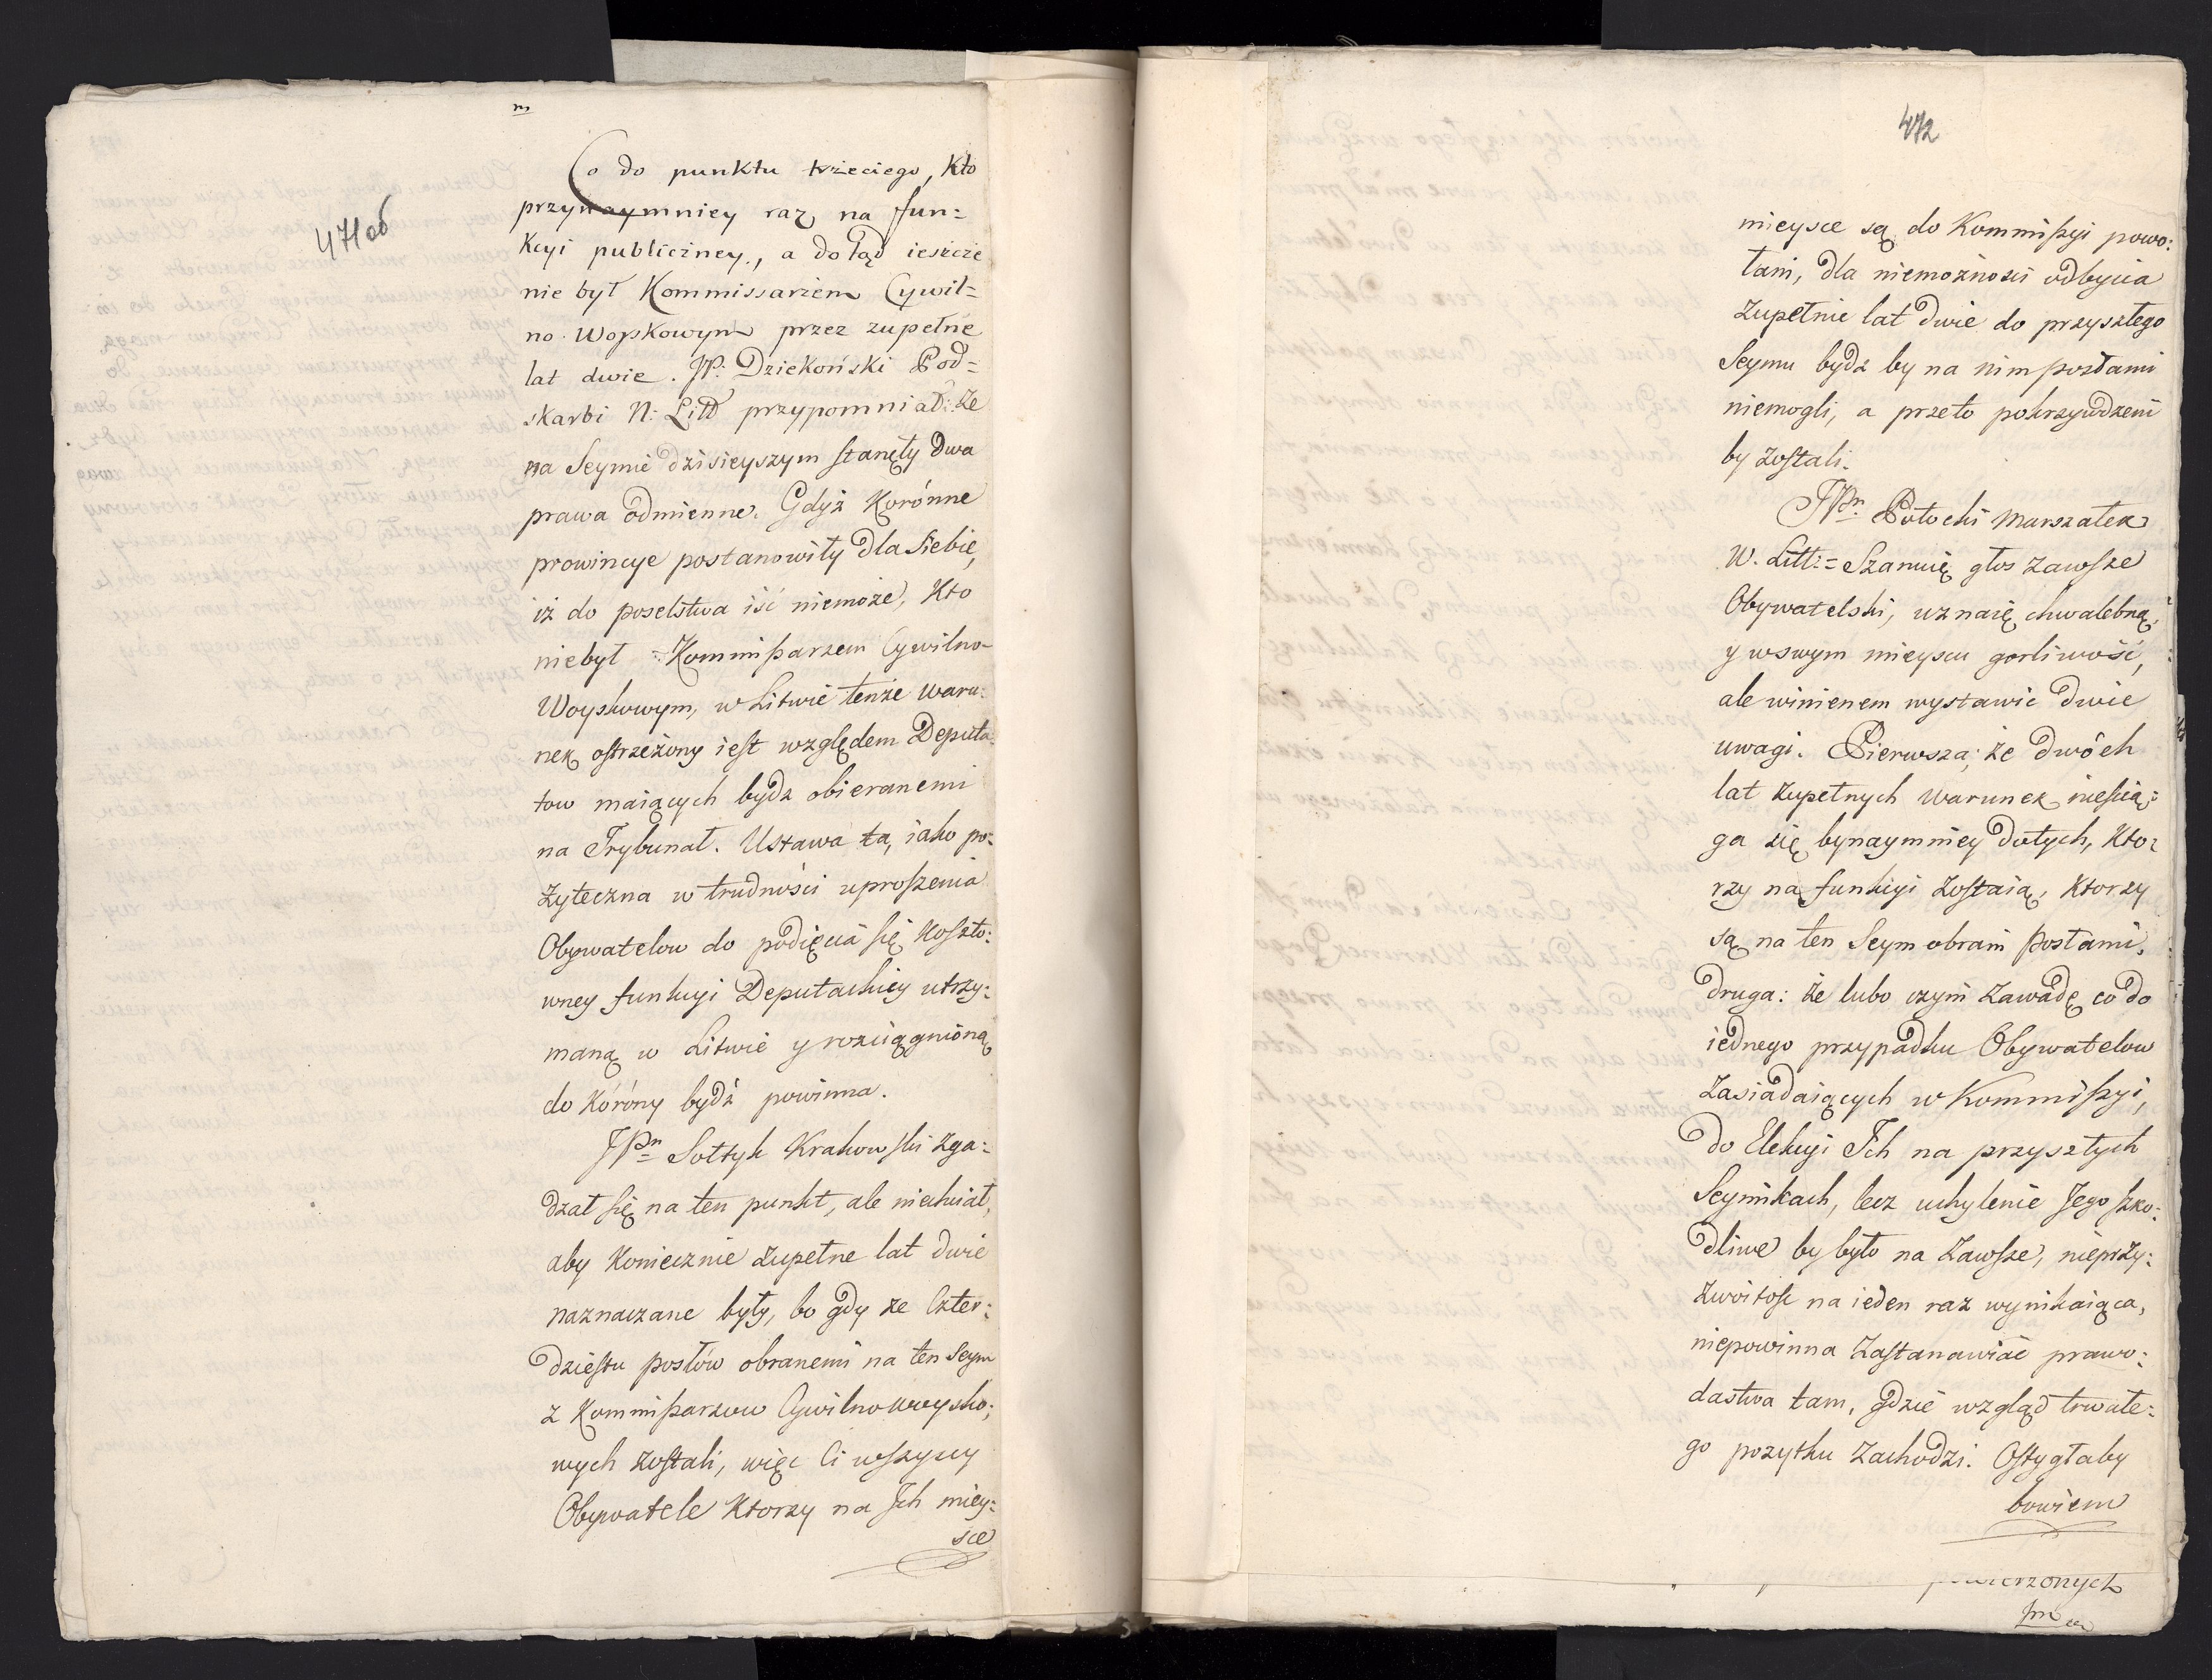 471об
Co do punktu trzeciego, Kto
przynaymniey raz na fun=
Kcyi publiczney, a dotąd ieszcze
nie był Kommissarzem Cywil=
no Woyskowym przez zupełne
lat dwie. JP: Dziekoński Pod=
skarbi N: Litt przypomniał: że
na Seymie dzisieyszym stanęły dwa
prawa odmienne. Gdyż Koronne
prowincye postanowiły dla siebie,
iż do poselstwa iść niemoże, Kto
niebył Kommissarzem Cywilno-
Woyskowym, w Litwie tenże waru:
nek ostrzeżony iest względem Deputa
tow maiących bydz obieranemi
na Trybunał. Ustawa ta, iako po:
żyteczna w trudności uproszenia
Obywatelow do podięcia się koszto:
wney funkcyi Deputackiey utrzy:
maną w Litwie y rozciągnioną
do Korony bydź powinna.
JPn Sołtyk Krakowski zga:
dzał się na ten punkt, ale niechciał,
aby Koniecznie zupełne lat dwie
naznaczane były, bo gdy ze Czter:
dziestu posłów obranemi na ten Seym
z Kommissarzow Cywilnowoysko:
wych zostali, więc Ci wszyscy
Obywatele Ktorzy na Ich miey:
sce
472
mieysce są do Kommissyi powo:
łani, dla niemożnosci odbycia
zupełnie lat dwie do przyszłego
Seymu bydz by na nim posłami
niemogli, a przeto pokrzywdzeni
by zostali.
JPn Potocki Marszałek
W. Litt:= Szanuię głos zawsze
Obywatelski, uznaię chwalebną,
y wswym mieyscu gorliwość,
ale winienem wystawić dwie
uwagi. Pierwsza; że dwóch
lat zupełnych warunek niescią:
ga się bynaymniey dotych, Kto:
rzy na funkcyi zostaią, Ktorzy
są na ten Seym obrani posłami.
druga: że lubo czyni zawadę co do
iednego przypadku Obywatelow
zasiadaiących w Kommissyi,
do Elekcyi Ich na przyszłych
Seymikach, lecz uchylenie Jego szko:
dliwe by było na zawsze, nieprzy:
zwoitość na ieden raz wynikaiąca,
niepowinna zastanawiać prawo:
dastwa tam, gdzie wzgląd trwałe:
go pozytku zachodzi. Ostygłaby
bowiem